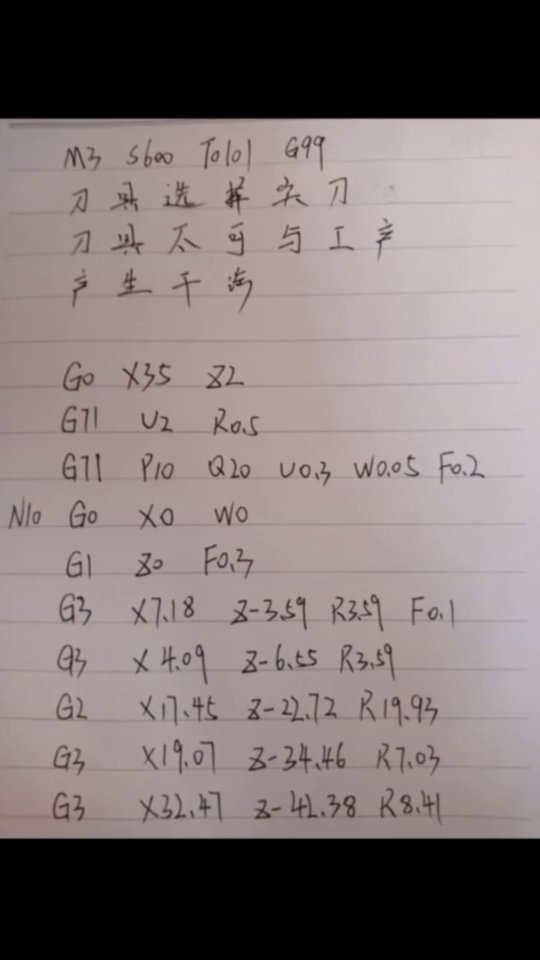 M3 S600 T0101 G99
刀具选择尖刀
刀具不可与工产
产生干涉
G0 X35 Z2
G71 U2 R0.5
G71 P10 Q20 U0.3 W0.05 F0.2
N10 G0 X0 W0
G1 Z0 F0.3
G3 X7.18 Z-3.59 R3.59 F0.1
G3 X4.09 Z-6.55 R3.59
G2 X17.45 Z-22.72 R19.93
G3 X19.07 Z-34.46 R7.03
G3 X32.47 Z-42.38 R8.41